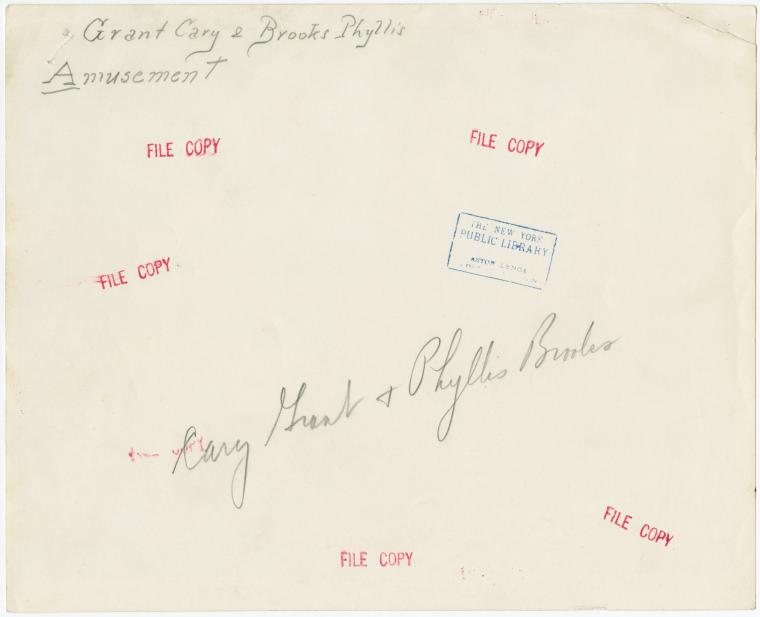 Grant Cary & Brooks Phyllis
Amusement
FILE COPY
FILE COPY
THE NEW YORK
PUBLIC LIBRARY
ASTOR LENOX
FILE COPY
Cary Grant + Phyllis Brooks
COPY
FILE COPY
FILE COPY